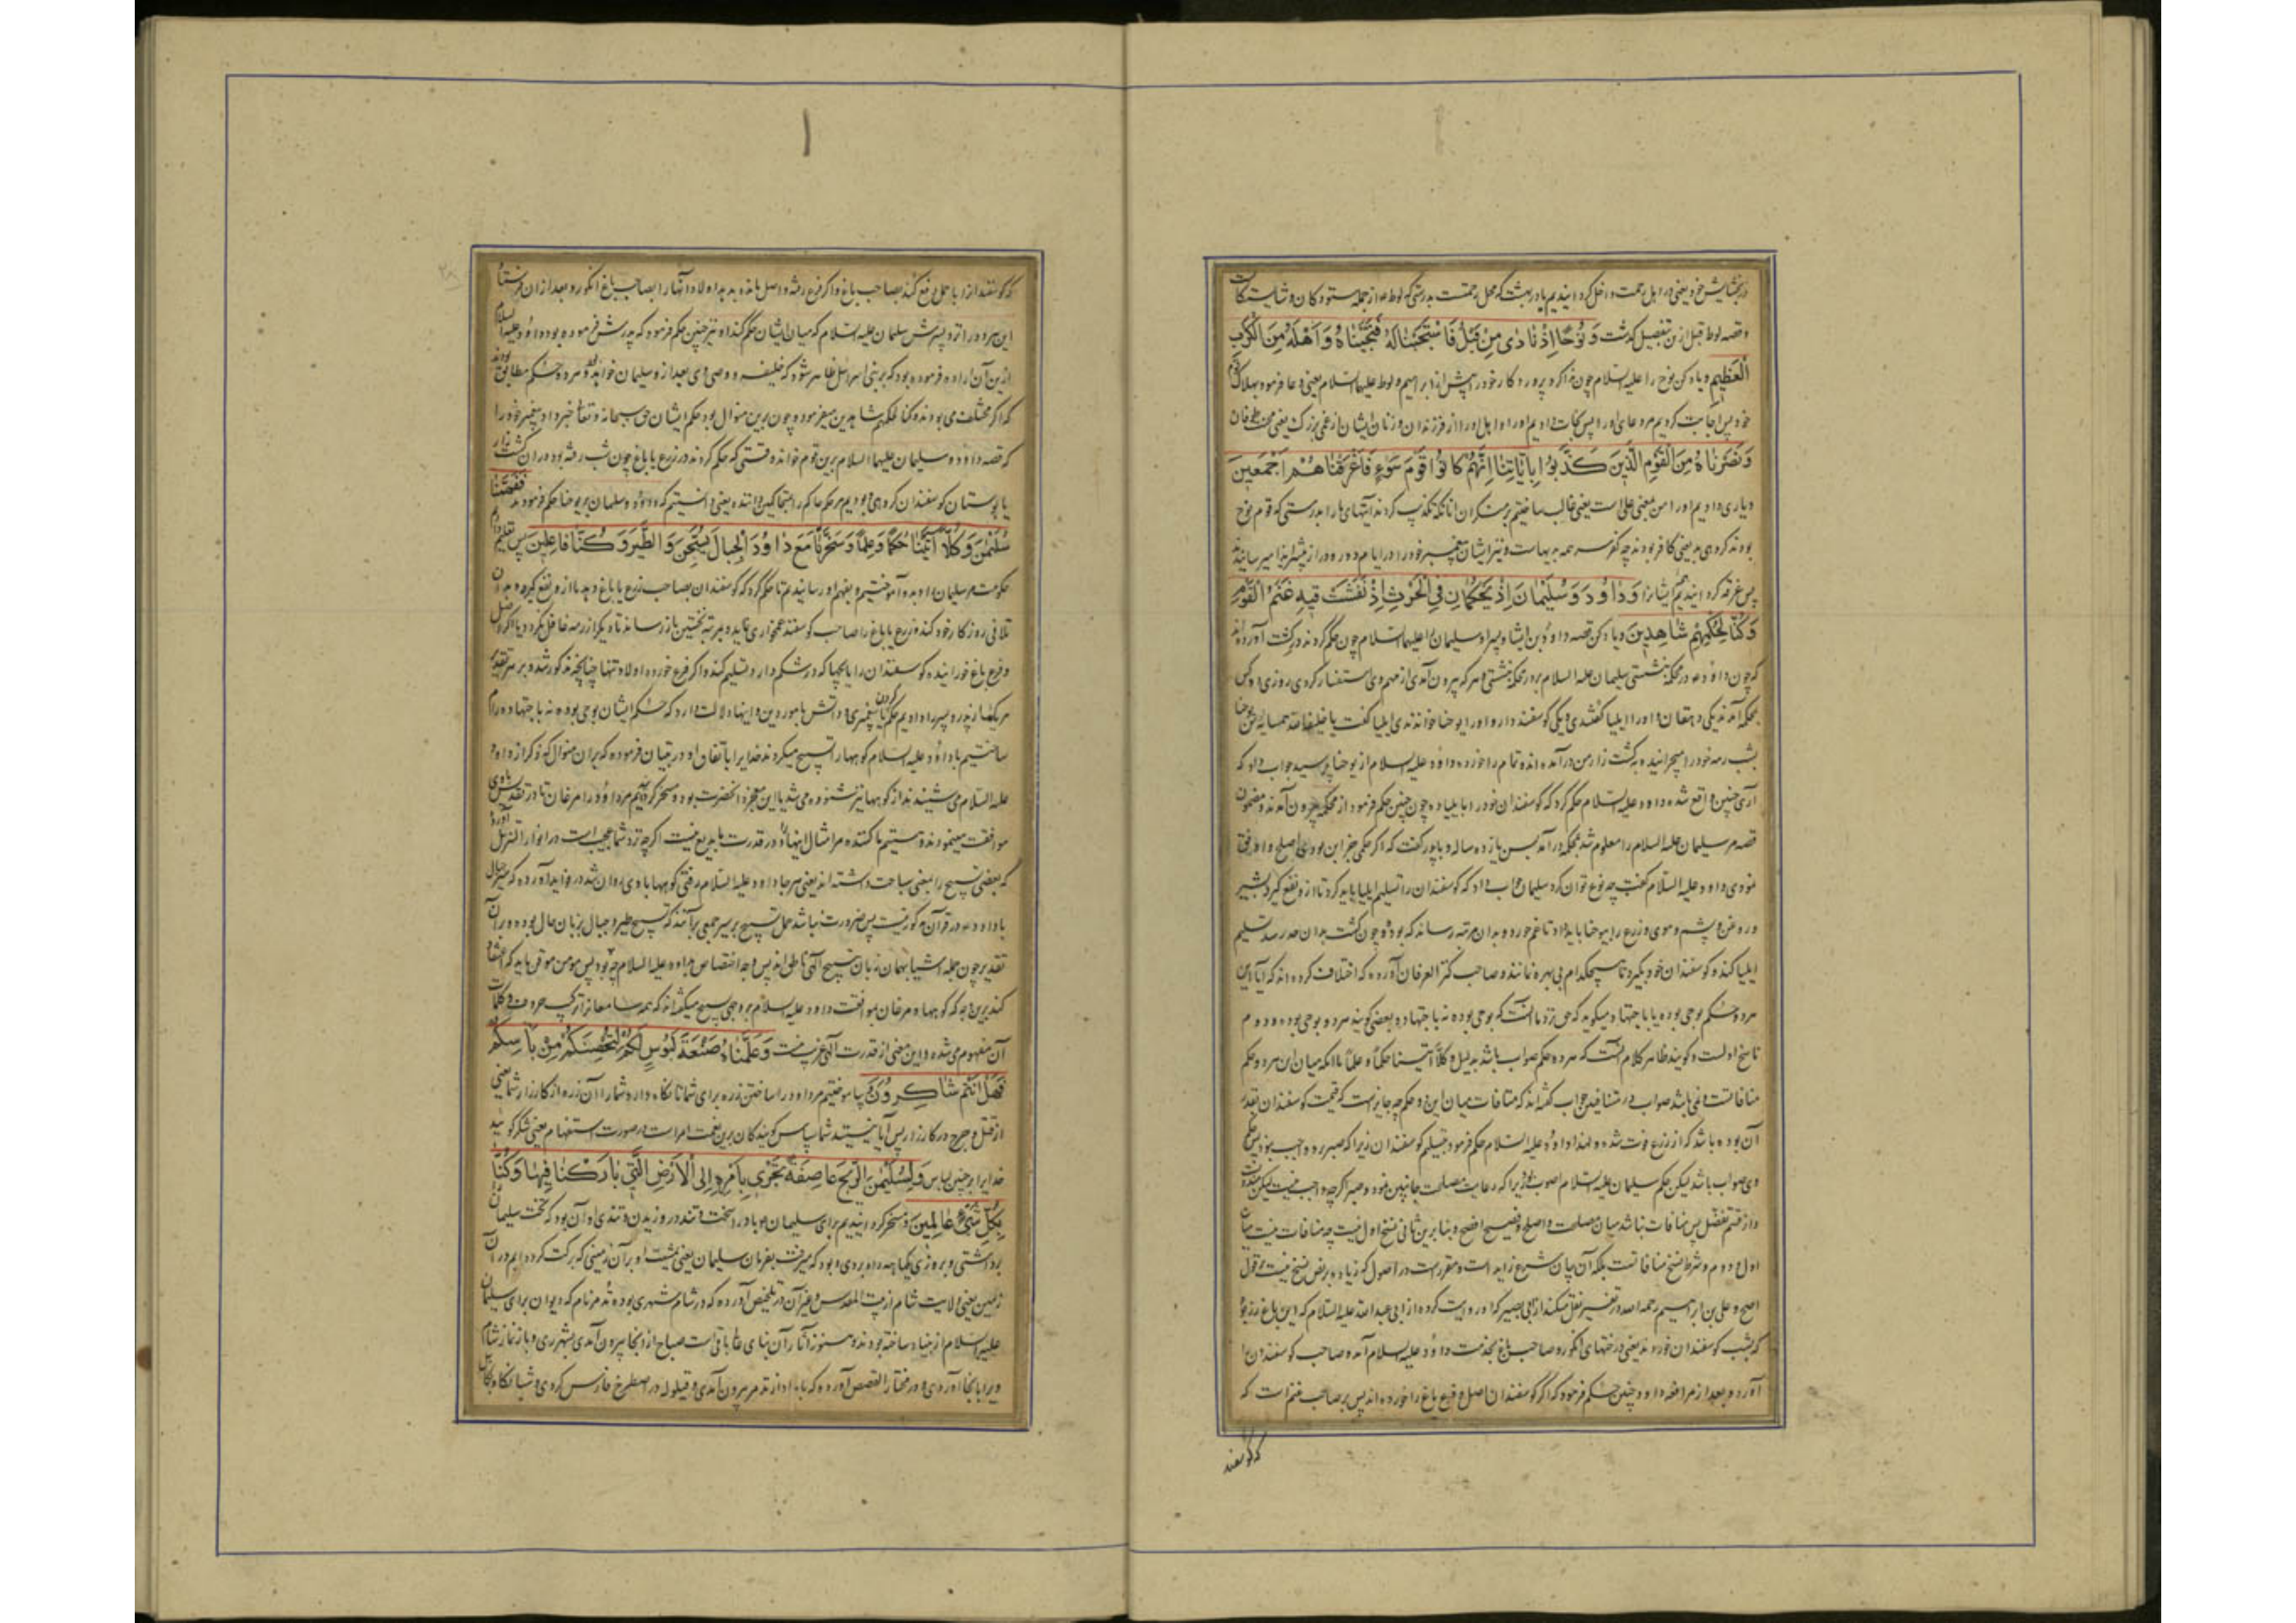 در بخشایش خود یعنی در اهل رحمت داخل کردانیدیم یا در بهشت که محل رحمتست بدرستی که لوط ع از جمله ستودکان و شایستکان
و قصه لوط قبل ازین تفصیل کذشت وَنُوحًا اِذْ نَادٰی مِنْ قَبْلُ فَاسْتَجَبْنَا لَهُ فَنَجَّيْنَاهُ وَاَهْلَهُ مِنَ الْکَرْبِ
الْعَظِيمِ و یاد کن نوح را علیه السلام چون ندا کرد پروردکار خود را پیش از ابراهیم و لوط علیهما السلام یعنی دعا فرمود بهلاک قوم
خود پس اجابت کردیم مر دعای او را پس نجات دادیم او را و اهل او را از فرزندان و زنان ایشان از غمی بزرک یعنی محنت طوفان
وَنَصَرْنَاهُ مِنَ الْقَوْمِ الَّذِينَ کَذَّبُوا بِاٰيَاتِنَا اِنَّهُمْ کَانُوا قَوْمَ سَوْءٍ فَاَغْرَقْنَاهُمْ اَجْمَعِينَ
و یاری دادیم او را من بمعنی علی است یعنی غالب ساختیم بر منکران انانکه تکذیب کردند آیتهای ما را بدرستی که قوم نوح
بودند کروهی بد یعنی کافر بودند چه کفر سر همه بدیهاست و نیز ایشان پیغمبر خود را در ایام دور و دراز ایذا میرسانیدند
پس غرقه کردانیدیم ایشانرا وَدَاوُدَ وَسُلَيْمَانَ اِذْ يَحْکُمَانِ فِی الْحَرْثِ اِذْ نَفَشَتْ فِيهِ غَنَمُ الْقَوْمِ
وَکُنَّا لِحُکْمِهِمْ شَاهِدِينَ و یاد کن قصه داود بن ایشا و پسر او سلیمان را علیهما السلام چون حکم کردند در کشت آورده‌اند
که چون داود ع در محکمه نشستی سلیمان علیه السلام بر در محکمه نشستی و هر که بیرون آمدی از مهم وی استفسار کردی روزی دو کس
بمحکمه آمدند یکی دهقان و او را ایلیا کفتندی و یکی کوسفند دار و او را یوحنا خواندندی ایلیا کفت یا خلیفة الله همسایه من یوحنا
بشب رمه خود را میچرانید بکشت زار من در آمده‌اند تمام را خورده داود علیه السلام از یوحنا پرسید جواب داد که
آری چنین واقع شده داود علیه السلام حکم کرد که کوسفندان خود را بایلیا ده چون چنین حکم فرمود از محکمه بیرون آمدند و مضمون
قصه مر سلیمان علیه السلام را معلوم شد بمحکمه در آمد بسن یازده ساله و با پدر کفت که اکر حکمی جز این بودی اصلح
نمودی داود علیه السلام کفت چه نوع توان کرد سلیمان جواب داد که کوسفندان را تسلیم ایلیا باید کرد تا از او نفع کیرد بشیر
و روغن و پشم و موی و زرع را بیوحنا باید داد تا غم خورد و بدان مرتبه رساند که بود و چون کشت بدان حد رسد تسلیم
ایلیا کند و کوسفندان خود بکیرد تا هیچکدام بی بهره نمانند و صاحب کنز العرفان آورده که اختلاف کرده‌اند که آیا این
هر دو حکم بوحی بوده یا باجتهاد میکوید که حق نزد ما آنست که بوحی بوده نه باجتهاد و بعضی کویند هر دو بوحی بوده و دوم
ناسخ اولست و کویند ظاهر کلام آنست که هر دو حکم صواب باشد بدلیل وکلّا آتینا حکما و علما با انکه میان این هر دو حکم
منافاتست و نمی‌باشد صواب در متنافیین جواب کفته‌اند که منافات میان این دو حکم چه جایز است که قیمت کوسفندان بقدر
آن بوده باشد که از زرع فوت شده و لهذا داود علیه السلام حکم فرمود بتسلیم کوسفندان زیرا که صبر واجب نبود پس حکم
وی صواب باشد لیکن حکم سلیمان علیه السلام اصوب بود زیرا که رعایت مصلحت جانبین نمود و صبر اکرچه واجب نیست لیکن
پس منافات نباشد میان مصلحت و اصلح و فصیح و افصح و بنابرین ثانی نسخ اول نیست چه منافات نیست میان
اول و دوم و شرط نسخ منافاتست بلکه آن بیان شرع زاید است و مقررست در اصول که زیاده بر نص نسخ نیست بر قول
اصح و علی بن ابراهیم رحمه الله در تفسیر نقل میکند از ابی بصیر که او روایت کرده از ابی عبدالله علیه السلام که این باغ رز بود
که بشب کوسفندان خوردند یعنی درختهای انکور و صاحب باغ بخدمت داود علیه السلام آمد و صاحب کوسفندان را
آورد و بعد از مرافعه داود چنین حکم فرمود که اکر کوسفندان اصل و فرع باغ را خورده‌اند پس بر صاحب غنم است که
که کوسفند
که کوسفندانرا با حمل دفع کند بصاحب باغ و اکر فرع رفته و اصل مانده بدهد اولاد آنها را بصاحب باغ انکور و بعد از ان فرستاد
این هر دو را نزد پسرش سلیمان علیه السلام که میان ایشان حکم کند او نیز چنین حکم فرمود که پدرش فرموده بود و داود علیه السلام
ازین آن اراده فرموده بود که بر بنی اسرائیل ظاهر شود که خلیفه و وصی وی بعد از وی سلیمان خواهد بود و هر دو حکم مطابق بودند
که اکر مختلف می‌بودند و کنا لحکمهما شاهدین میفرمود و چون برین منوال بود حکم ایشان حق سبحانه و تعالی خبر داد پیغمبر خود را
که قصه داود و سلیمان علیهما السلام برین قوم خواند وقتی که حکم کردند در زرع یا باغ چون شب رفته بود در ان کشت زار
یا بوستان کوسفندان کروهی و بودیم مر حکم حاکم را داننده یعنی دانستیم که داود و سلیمان بر یوحنا حکم فرمودند فَفَهَّمْنَا
سُلَيْمٰنَ وَکُلًّا اٰتَيْنَا حُکْمًا وَعِلْمًا وَسَخَّرْنَا مَعَ دَاوُدَ الْجِبَالَ يُسَبِّحْنَ وَالطَّيْرَ وَکُنَّا فَاعِلِينَ پس تعلیم دادیم
حکومت مر سلیمان را و بدو آموختیم و بفهم او رسانیدیم تا حکم کرد که کوسفندان بصاحب زرع یا باغ دهد تا از او نفع کیرد و بدان
تلافی روزکار خود کند و زرع یا باغ را صاحب کوسفند غمخواری نماید و بمرتبه نخستین باز رساند تا دیکر از رمه غافل نکردد یا اکر اصل
و فرع باغ خورانیده کوسفندان را با بچها که در شکم دارد تسلیم کند و اکر فرع خورده اولاد تنها چنانچه مذکور شد و بر هر تقدیر
هر یک را از پدر و پسر دادیم حکم کردن یا پیغمبری و دانش بامور دین و اینها دلالت دارد که حکم ایشان بوحی بوده نه باجتهاد و رام
ساختیم با داود علیه السلام کوهها را تسبیح میکردند خدایرا باتفاق او در تبیان فرموده که بر ان منوال که ذکر از داود
علیه السلام می شنیدند از کوهها نیز شنوده می شد با این معجزه انحضرت بود و مسخر کردیم مر داود را مرغان تا در تقدیس با وی
موافقت مینمودند و هستیم ما کننده مر امثال اینها را و در قدرت ما بدیع نیست اکرچه نزد شما عجیب است در انوار التنزیل آورده
که بعضی تسبیح را بمعنی سباحت داشته‌اند یعنی هر جا داود علیه السلام رفتی کوهها با وی روان شد در فواید آورده که سیر جبال
با داود ع در قرآن مذکور نیست پس ضرورت نباشد حمل تسبیح بر سیر جمعی برآنند که تسبیح طیر و جبال بزبان حال بوده و در آن
تقدیر چون جمله اشیا بهمان زبان تسبیح الهی ناطق‌اند پس وجه اختصاص بداود علیه السلام چه بود پس مومن موقن باید که اعتقاد
کند برین وجه که کوهها و مرغان بموافقت داود علیه السلام بر وجهی تسبیح میکفته‌اند که همه سامعانرا ترکیب حروف و کلمات
آن مفهوم می شده و این معنی از قدرت الهی غریب نیست وَعَلَّمْنَاهُ صَنْعَةَ لَبُوسٍ لَکُمْ لِتُحْصِنَکُمْ مِنْ بَاْسِکُمْ
فَهَلْ اَنْتُمْ شَاکِرُونَ و بیاموختیم مر داود را ساختن زره برای شما تا نکاه دارد شما را آن زره از کارزار شما یعنی
از قتل و جرح در کارزار پس آیا نیستید شما سپاس کویندکان برین نعمت امر است در صورت استفهام یعنی شکر کویید
خدایرا بر چنین لباس وَلِسُلَيْمٰنَ الرِّيحَ عَاصِفَةً تَجْرِی بِاَمْرِهِ اِلَی الْاَرْضِ الَّتِی بَارَکْنَا فِيهَا وَکُنَّا
بِکُلِّ شَیْءٍ عَالِمِينَ و مسخر کردانیدیم برای سلیمان ع باد را سخت و تند در وزیدن و تندی او آن بود که تخت سلیمان
برداشتی و بروزی یکماهه راه بردی و بود که میرفت بفرمان سلیمان یعنی پشت او بر آن زمینی که برکت کرده‌ایم در آن
زمین یعنی ولایت شام از بیت المقدس و غیر آن در تلخیص آورده که در شام شهری بوده تدمر نام که دیوان برای سلیمان
علیه السلام از بنیاد ساخته بودند و هنوز آثار آن بنای باقی است صباح از انجا بیرون آمدی بشهر ری و باز نماز شام
ویرا بانجا آوردی و در مختار القصص آورده که بامداد از تدمر بیرون آمدی و قیلوله در اصطخر فارس کردی و شبانکاه بکابل